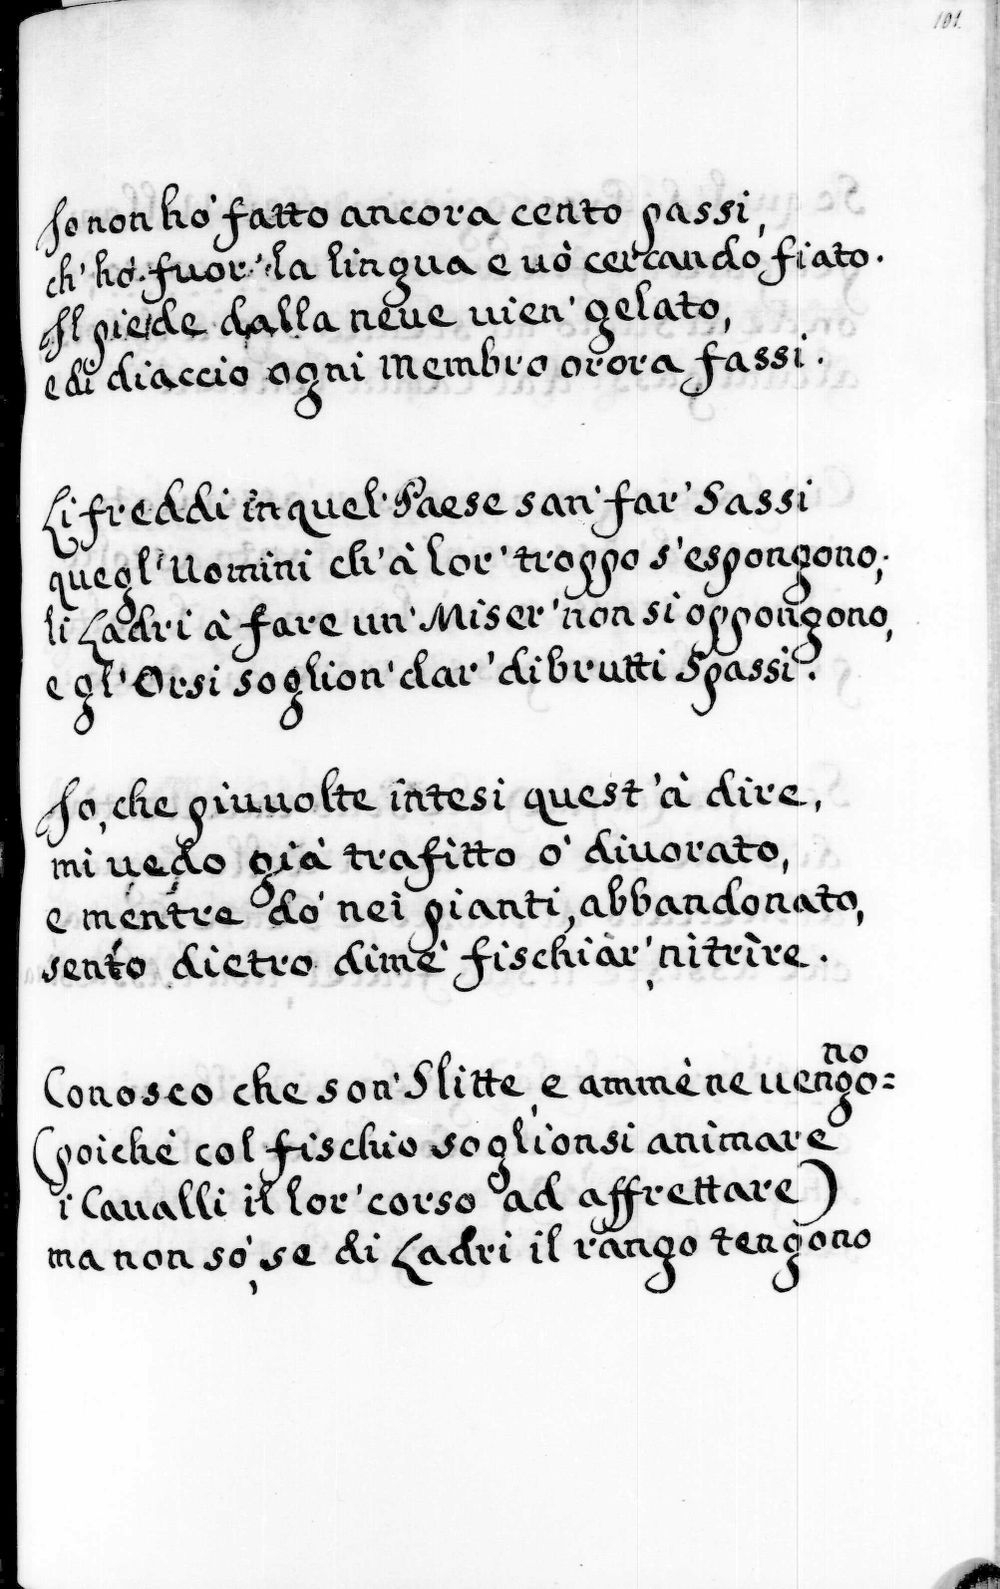 101
Io non hò fatto ancora cento passi,
ch' hò fuor' la lingua e uò cercando fiato.
Il piede dalla neue uien' gelato,
e di diaccio ogni membro orora fassi.
Li freddi in quel' Paese san' far' Sassi
quegl' Uomini ch' à lor' troppo s'espongono;
li Ladri à fare un' Miser' non si oppongono,
e gl' Orsi soglion' dar' di brutti Spassi.
Io, che piuuolte intesi quest' à dire,
mi uedo già trafitto ò diuorato,
e mentre dò nei pianti, abbandonato,
sento dietro dimè fischiar', nitrire.
Conosco che son' Slitte, e ammè ne uengo=
no
(poichè col fischio soglionsi animare
i Caualli il lor' corso ad affrettare)
ma non sò, se di Ladri il rango tengono